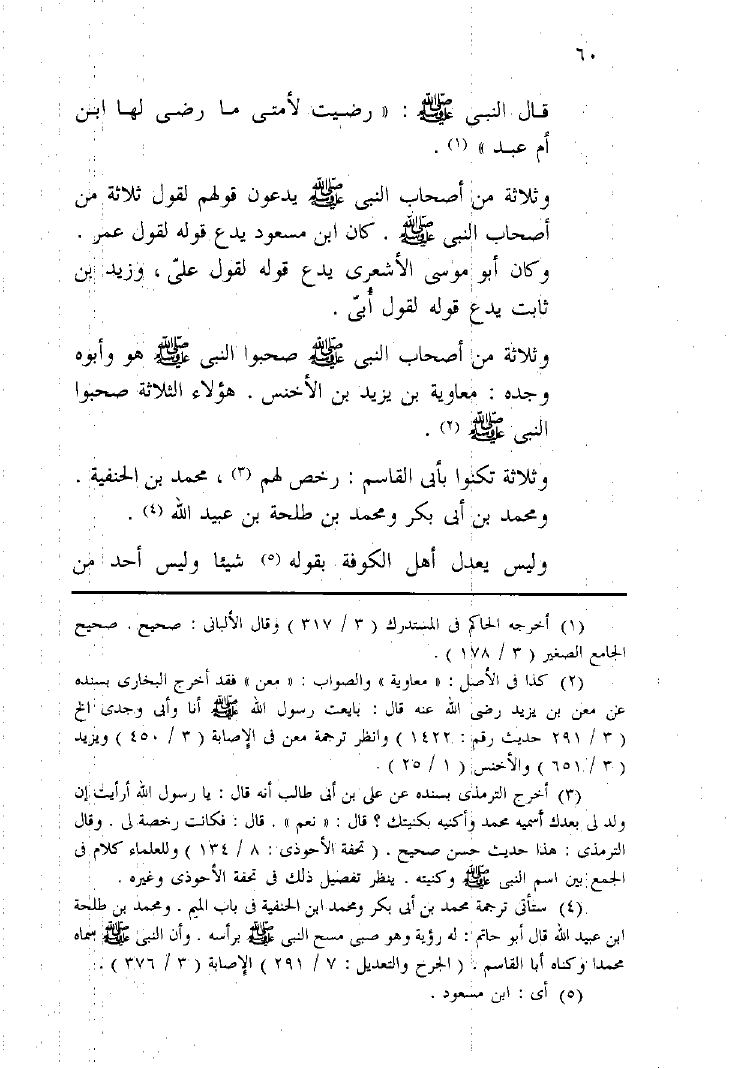 ٦٠
قال النبى ﷺ : « رضيت لأمتى ما رضى لها ابن
أم عبد » (١) .
وثلاثة من أصحاب النبى ﷺ يدعون قولهم لقول ثلاثة من
أصحاب النبى ﷺ . كان ابن مسعود يدع قوله لقول عمر .
وكان أبو موسى الأشعرى يدع قوله لقول علىّ ، وزيد بن
ثابت يدع قوله لقول أُبىّ .
وثلاثة من أصحاب النبى ﷺ صحبوا النبى ﷺ هو وأبوه
وجده : معاوية بن يزيد بن الأخنس . هؤلاء الثلاثة صحبوا
النبى ﷺ (٢) .
وثلاثة تكنوا بأبى القاسم : رخص لهم (٣) ، محمد بن الحنفية .
ومحمد بن أبى بكر ومحمد بن طلحة بن عبيد الله (٤) .
وليس يعدل أهل الكوفة بقوله (٥) شيئا وليس أحد من
(١) أخرجه الحاكم فى المستدرك ( ٣ / ٣١٧ ) وقال الألبانى : صحيح . صحيح
الجامع الصغير ( ٣ / ١٧٨ ) .
(٢) كذا فى الأصل : « معاوية » والصواب : « معن » فقد أخرج البخارى بسنده
عن معن بن يزيد رضى الله عنه قال : بايعت رسول الله ﷺ أنا وأبى وجدى الخ
( ٣ / ٢٩١ حديث رقم : ١٤٢٢ ) وانظر ترجمة معن فى الإصابة ( ٣ / ٤٥٠ ) ويزيد
( ٣ / ٦٥١ ) والأخنس ( ١ / ٢٥ ) .
(٣) أخرج الترمذى بسنده عن على بن أبى طالب أنه قال : يا رسول الله أرأيت إن
ولد لى بعدك أسميه محمد وأكنيه بكنيتك ؟ قال : « نعم » . قال : فكانت رخصة لى . وقال
الترمذى : هذا حديث حسن صحيح . ( تحفة الأحوذى : ٨ / ١٣٤ ) وللعلماء كلام فى
الجمع بين اسم النبى ﷺ وكنيته . ينظر تفصيل ذلك فى تحفة الأحوذى وغيره .
(٤) ستأتى ترجمة محمد بن أبى بكر ومحمد ابن الحنفية فى باب الميم . ومحمد بن طلحة
ابن عبيد الله قال أبو حاتم : له رؤية وهو صبى مسح النبى ﷺ برأسه . وأن النبى ﷺ سماه
محمدا وكناه أبا القاسم . ( الجرح والتعديل : ٧ / ٢٩١ ) الإصابة ( ٣ / ٣٧٦ ) .
(٥) أى : ابن مسعود .